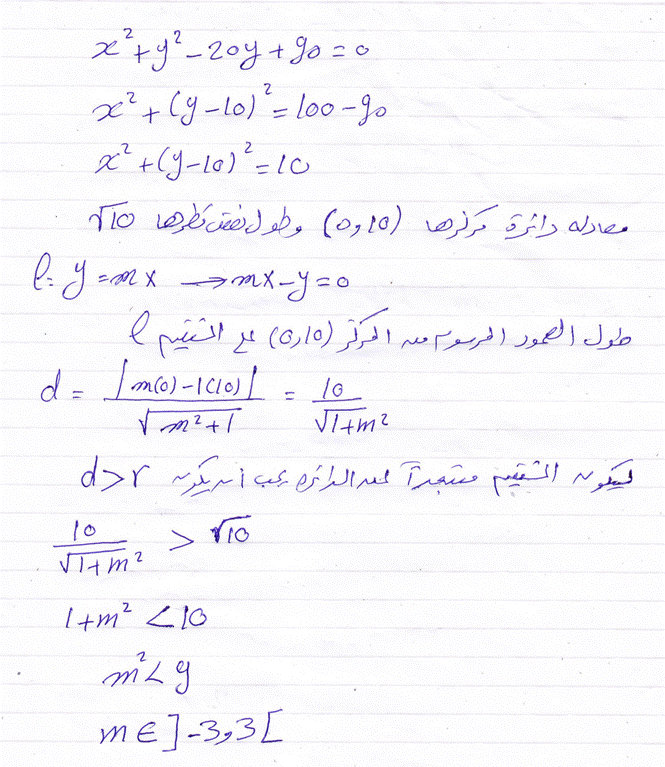 x² + y² - 20y + 90 = 0
x² + (y - 10)² = 100 - 90
x² + (y - 10)² = 10
معادلة دائرة مركزها (0,10) وطول نصف قطرها √10
l: y = mx → mx - y = 0
طول العمود المرسوم من المركز (0,10) على المستقيم l
d = |m(0) - 1(10)| / √(m² + 1) = 10 / √(1 + m²)
ليكون المستقيم خارج الدائرة يجب أن يكون d > r
10 / √(1 + m²) > √10
1 + m² < 10
m² < 9
m ∈ ]-3,3[